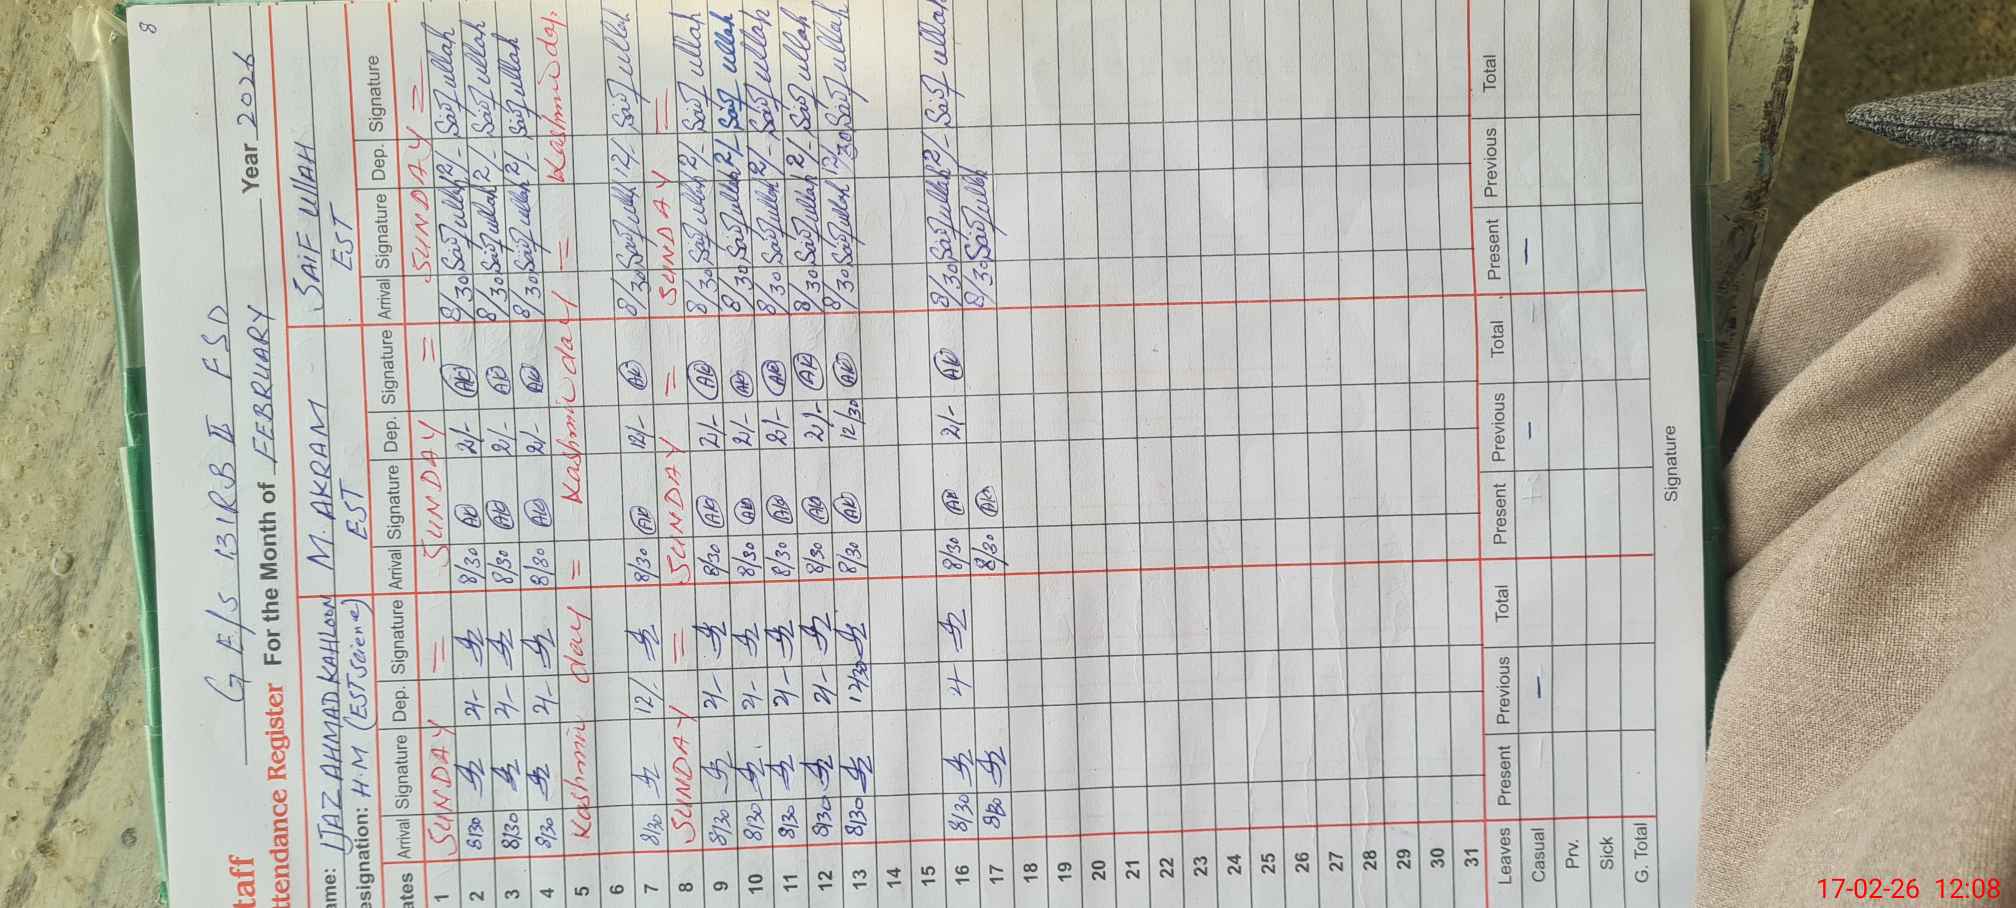 8
G E/S 131RB II FSD
Staff
Attendance Register For the Month of FEBRUARY Year 2026
Name: IJAZ AHMAD KAHLOON M. AKRAM SAIF ULLAH
Designation: H.M (EST Science) EST EST
Dates Arrival Signature Dep. Signature Arrival Signature Dep. Signature Arrival Signature Dep. Signature
1 SUNDAY = SUNDAY = SUNDAY =
2 8/30 2/- 8/30 AK 2/- AK 8/30 Saif ullah 12/- Saif ullah
3 8/30 2/- 8/30 AK 2/- AK 8/30 Saif ullah 2/- Saif ullah
4 8/30 2/- 8/30 AK 2/- AK 8/30 Saif ullah 2/- Saif ullah
5 Kashmir day = Kashmir day = Kashmir day.
6
7 8/30 12/- 8/30 AK 12/- AK 8/30 Saif ullah 12/- Saif ullah
8 SUNDAY = SUNDAY = SUNDAY =
9 8/30 2/- 8/30 AK 2/- AK 8/30 Saif ullah 2/- Saif ullah
10 8/30 2/- 8/30 AK 2/- AK 8/30 Saif ullah 2/- Saif ullah
11 8/30 2/- 8/30 AK 2/- AK 8/30 Saif ullah 2/- Saif ullah
12 8/30 2/- 8/30 AK 2/- AK 8/30 Saif ullah 2/- Saif ullah
13 8/30 12/30 8/30 AK 12/30 AK 8/30 Saif ullah 12/30 Saif ullah
14
15
16 8/30 2/- 8/30 AK 2/- AK 8/30 Saif ullah 2/- Saif ullah
17 8/30 8/30 AK 8/30 Saif ullah
18
19
20
21
22
23
24
25
26
27
28
29
30
31
Leaves Present Previous Total Present Previous Total Present Previous Total
Casual – – –
Prv.
Sick
G. Total
Signature
17-02-26 12:08